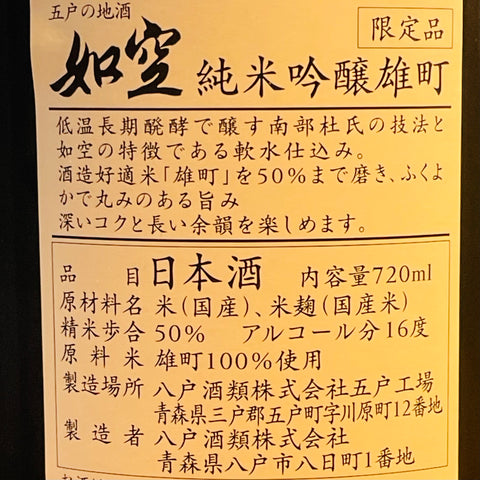 五戸の地酒
限定品
如空 純米吟醸雄町
低温長期醗酵で醸す南部杜氏の技法と
如空の特徴である軟水仕込み。
酒造好適米「雄町」を50%まで磨き、ふくよ
かで丸みのある旨み
深いコクと長い余韻を楽しめます。
品目 日本酒 内容量720ml
原材料名 米(国産)、米麹(国産米)
精米歩合 50% アルコール分16度
原料米 雄町100%使用
製造場所 八戸酒類株式会社五戸工場
青森県三戸郡五戸町字川原町12番地
製造者 八戸酒類株式会社
青森県八戸市八日町1番地